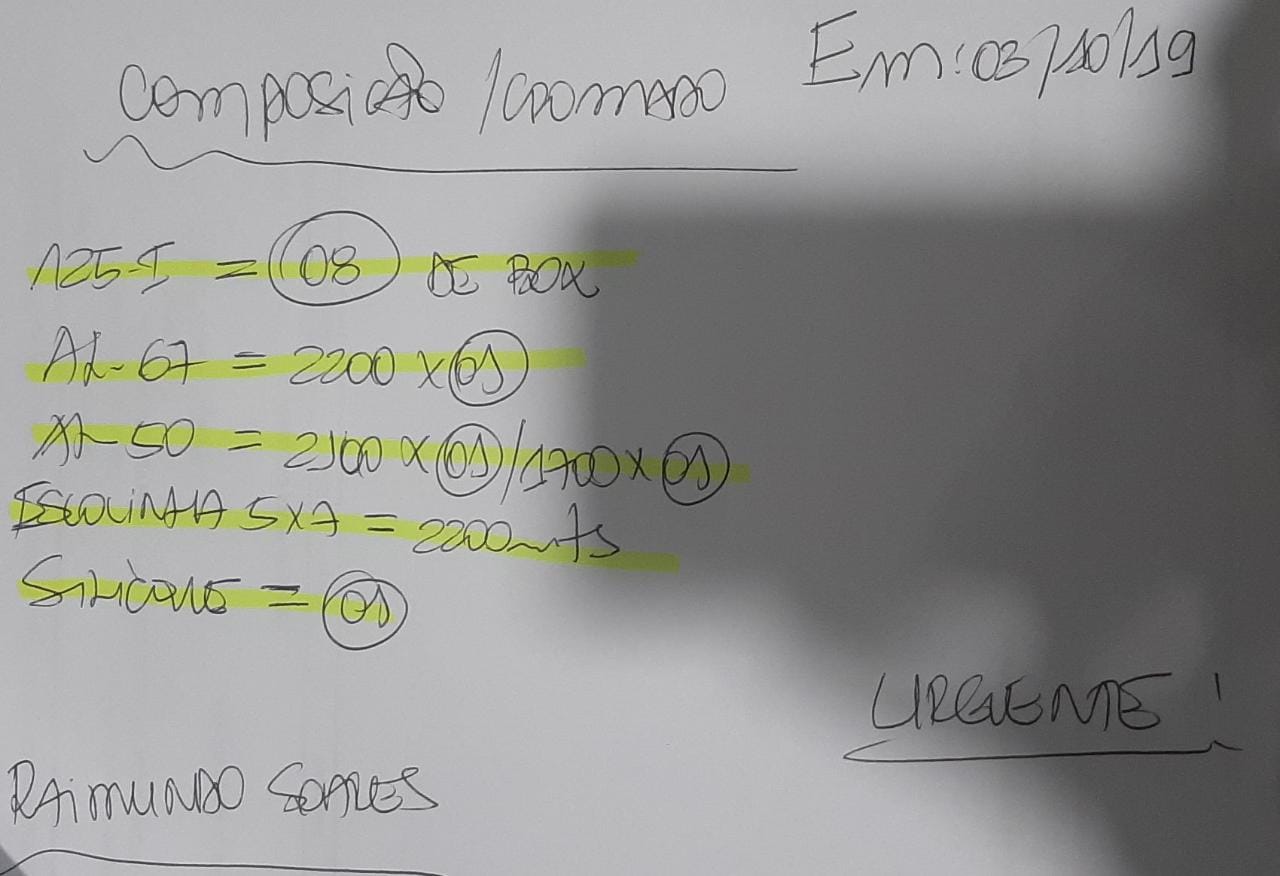 Composição / cromado
Em: 03/10/19
125-I = 08 DE BOX
AL-67 = 2200 x 01
AL-50 = 2100 x 01 / 1700 x 01
ESCOLINHA 5x7 = 2200 mts
Silicone = 01
URGENTE!
RAIMUNDO SOARES